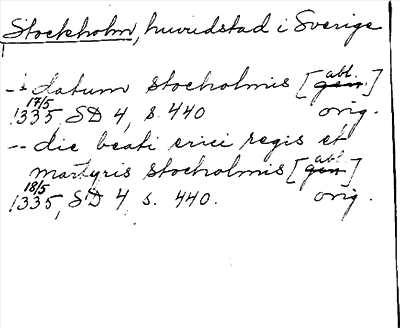 Stockholm, huvudstad i Sverige
-- datum stocholmis [gen. abl.]
17/5 1335, SD 4, s. 440 orig.
-- die beati erici regis et
martyris stocholmis [gen. abl.]
18/5 1335, SD 4 s. 440. orig.